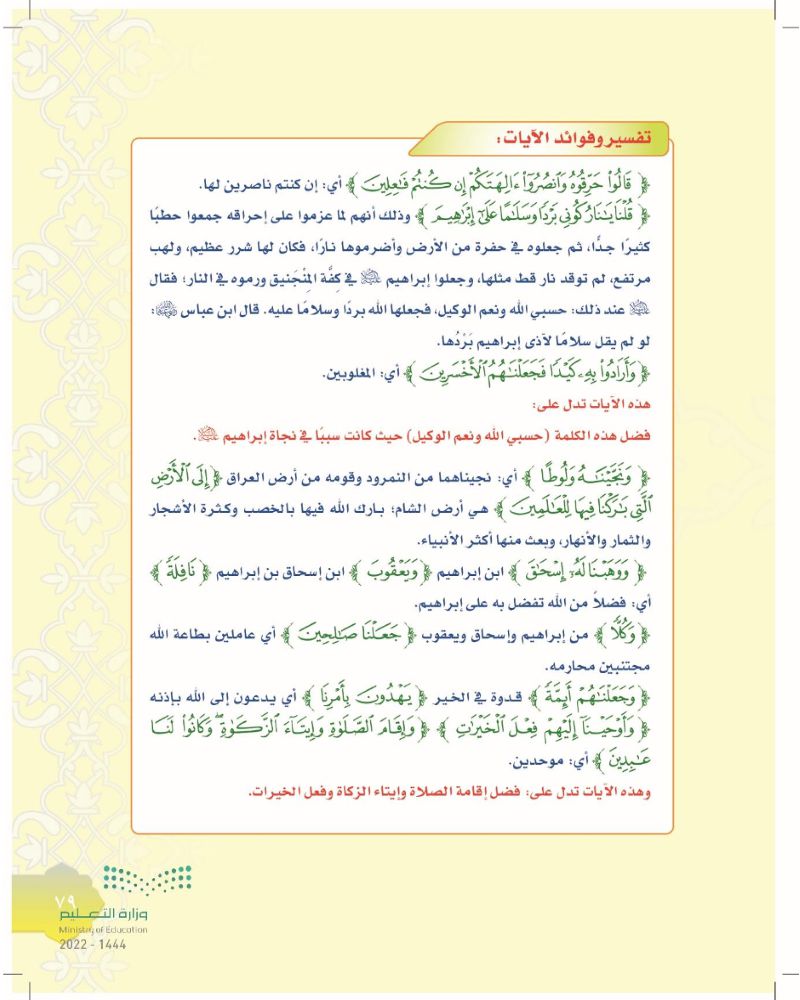 تفسير وفوائد الآيات:
﴿ قَالُوا۟ حَرِّقُوهُ وَٱنصُرُوٓا۟ ءَالِهَتَكُمْ إِن كُنتُمْ فَٰعِلِينَ ﴾ أي: إن كنتم ناصرين لها.
﴿ قُلْنَا يَٰنَارُ كُونِى بَرْدًا وَسَلَٰمًا عَلَىٰٓ إِبْرَٰهِيمَ ﴾ وذلك أنهم لما عزموا على إحراقه جمعوا حطبًا
كثيرًا جدًّا، ثم جعلوه في حفرة من الأرض وأضرموها نارًا، فكان لها شرر عظيم، ولهب
مرتفع، لم توقد نار قط مثلها، وجعلوا إبراهيم عليه السلام في كِفَّة المِنْجَنيق ورموه في النار؛ فقال
عليه السلام عند ذلك: حسبي الله ونعم الوكيل، فجعلها الله بردًا وسلامًا عليه. قال ابن عباس رضي الله عنهما:
لو لم يقل سلامًا لآذى إبراهيم بَرْدُها.
﴿ وَأَرَادُوا۟ بِهِۦ كَيْدًا فَجَعَلْنَٰهُمُ ٱلْأَخْسَرِينَ ﴾ أي: المغلوبين.
هذه الآيات تدل على:
فضل هذه الكلمة (حسبي الله ونعم الوكيل) حيث كانت سببًا في نجاة إبراهيم عليه السلام.
﴿ وَنَجَّيْنَٰهُ وَلُوطًا ﴾ أي: نجيناهما من النمرود وقومه من أرض العراق ﴿ إِلَى ٱلْأَرْضِ
ٱلَّتِى بَٰرَكْنَا فِيهَا لِلْعَٰلَمِينَ ﴾ هي أرض الشام؛ بارك الله فيها بالخصب وكثرة الأشجار
والثمار والأنهار، وبعث منها أكثر الأنبياء.
﴿ وَوَهَبْنَا لَهُۥٓ إِسْحَٰقَ ﴾ ابن إبراهيم ﴿ وَيَعْقُوبَ ﴾ ابن إسحاق بن إبراهيم ﴿ نَافِلَةً ﴾
أي: فضلاً من الله تفضل به على إبراهيم.
﴿ وَكُلًّا ﴾ من إبراهيم وإسحاق ويعقوب ﴿ جَعَلْنَا صَٰلِحِينَ ﴾ أي عاملين بطاعة الله
مجتنبين محارمه.
﴿ وَجَعَلْنَٰهُمْ أَئِمَّةً ﴾ قدوة في الخير ﴿ يَهْدُونَ بِأَمْرِنَا ﴾ أي يدعون إلى الله بإذنه
﴿ وَأَوْحَيْنَآ إِلَيْهِمْ فِعْلَ ٱلْخَيْرَٰتِ ﴾ ﴿ وَإِقَامَ ٱلصَّلَوٰةِ وَإِيتَآءَ ٱلزَّكَوٰةِ ۖ وَكَانُوا۟ لَنَا
عَٰبِدِينَ ﴾ أي: موحدين.
وهذه الآيات تدل على: فضل إقامة الصلاة وإيتاء الزكاة وفعل الخيرات.
٧٩
وزارة التعليم
Ministry of Education
2022 - 1444